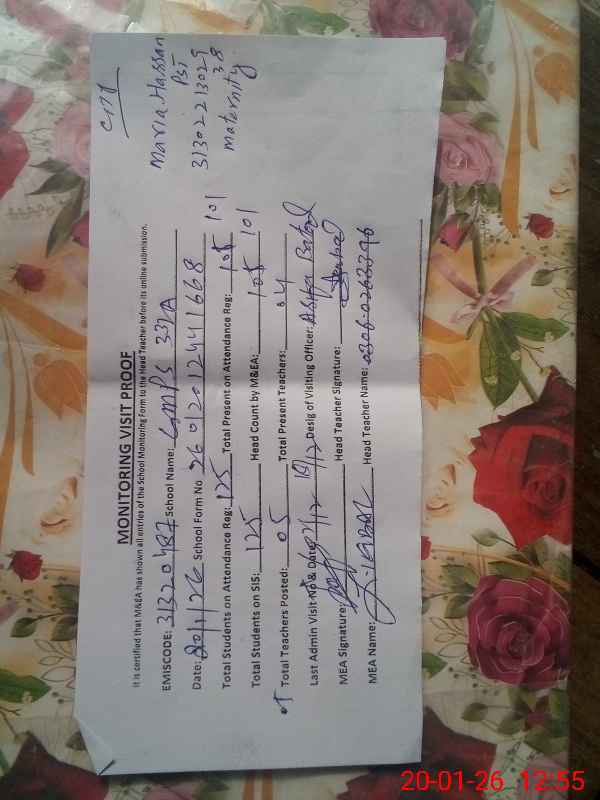 City
Maria Hassan
PST
31302213029
38
maternity
MONITORING VISIT PROOF
It is certified that M&EA has shown all entries of the School Monitoring Form to the Head Teacher before its online submission.
EMISCODE: 31320487 School Name: GMPS 33/A
Date: 20/1/26 School Form No 2601201241668
Total Students on Attendance Reg: 125 Total Present on Attendance Reg: 101
Total Students on SIS: 125 Head Count by M&EA: 101
Total Teachers Posted: 05 Total Present Teachers: 04
Last Admin Visit No & Date: Desig of Visiting Officer:
MEA Signature: Head Teacher Signature:
MEA Name: J-IQBAL Head Teacher Name:
20-01-26 12:55